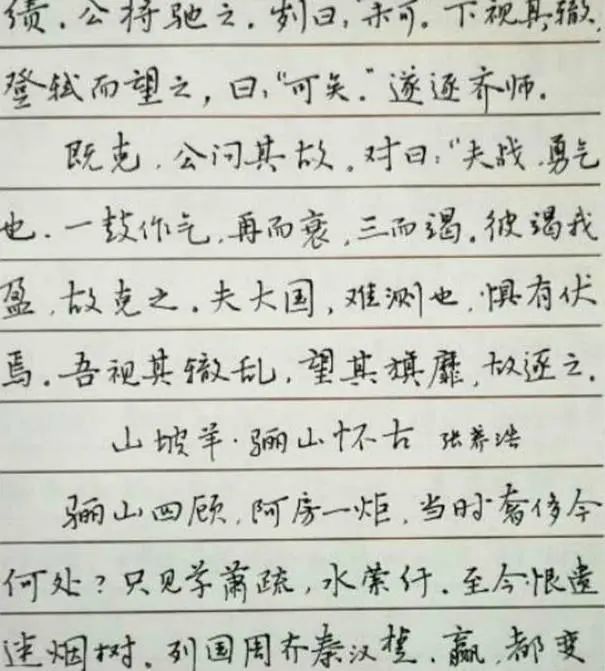 绩。公将驰之。刿曰:“未可。”下视其辙,
登轼而望之,曰:“可矣。”遂逐齐师。
既克,公问其故。对曰:“夫战,勇气
也。一鼓作气,再而衰,三而竭。彼竭我
盈,故克之。夫大国,难测也,惧有伏
焉。吾视其辙乱,望其旗靡,故逐之。
山坡羊·骊山怀古 张养浩
骊山四顾,阿房一炬,当时奢侈今
何处?只见草萧疏,水萦纡。至今恨遗
迷烟树。列国周齐秦汉楚,赢,都变